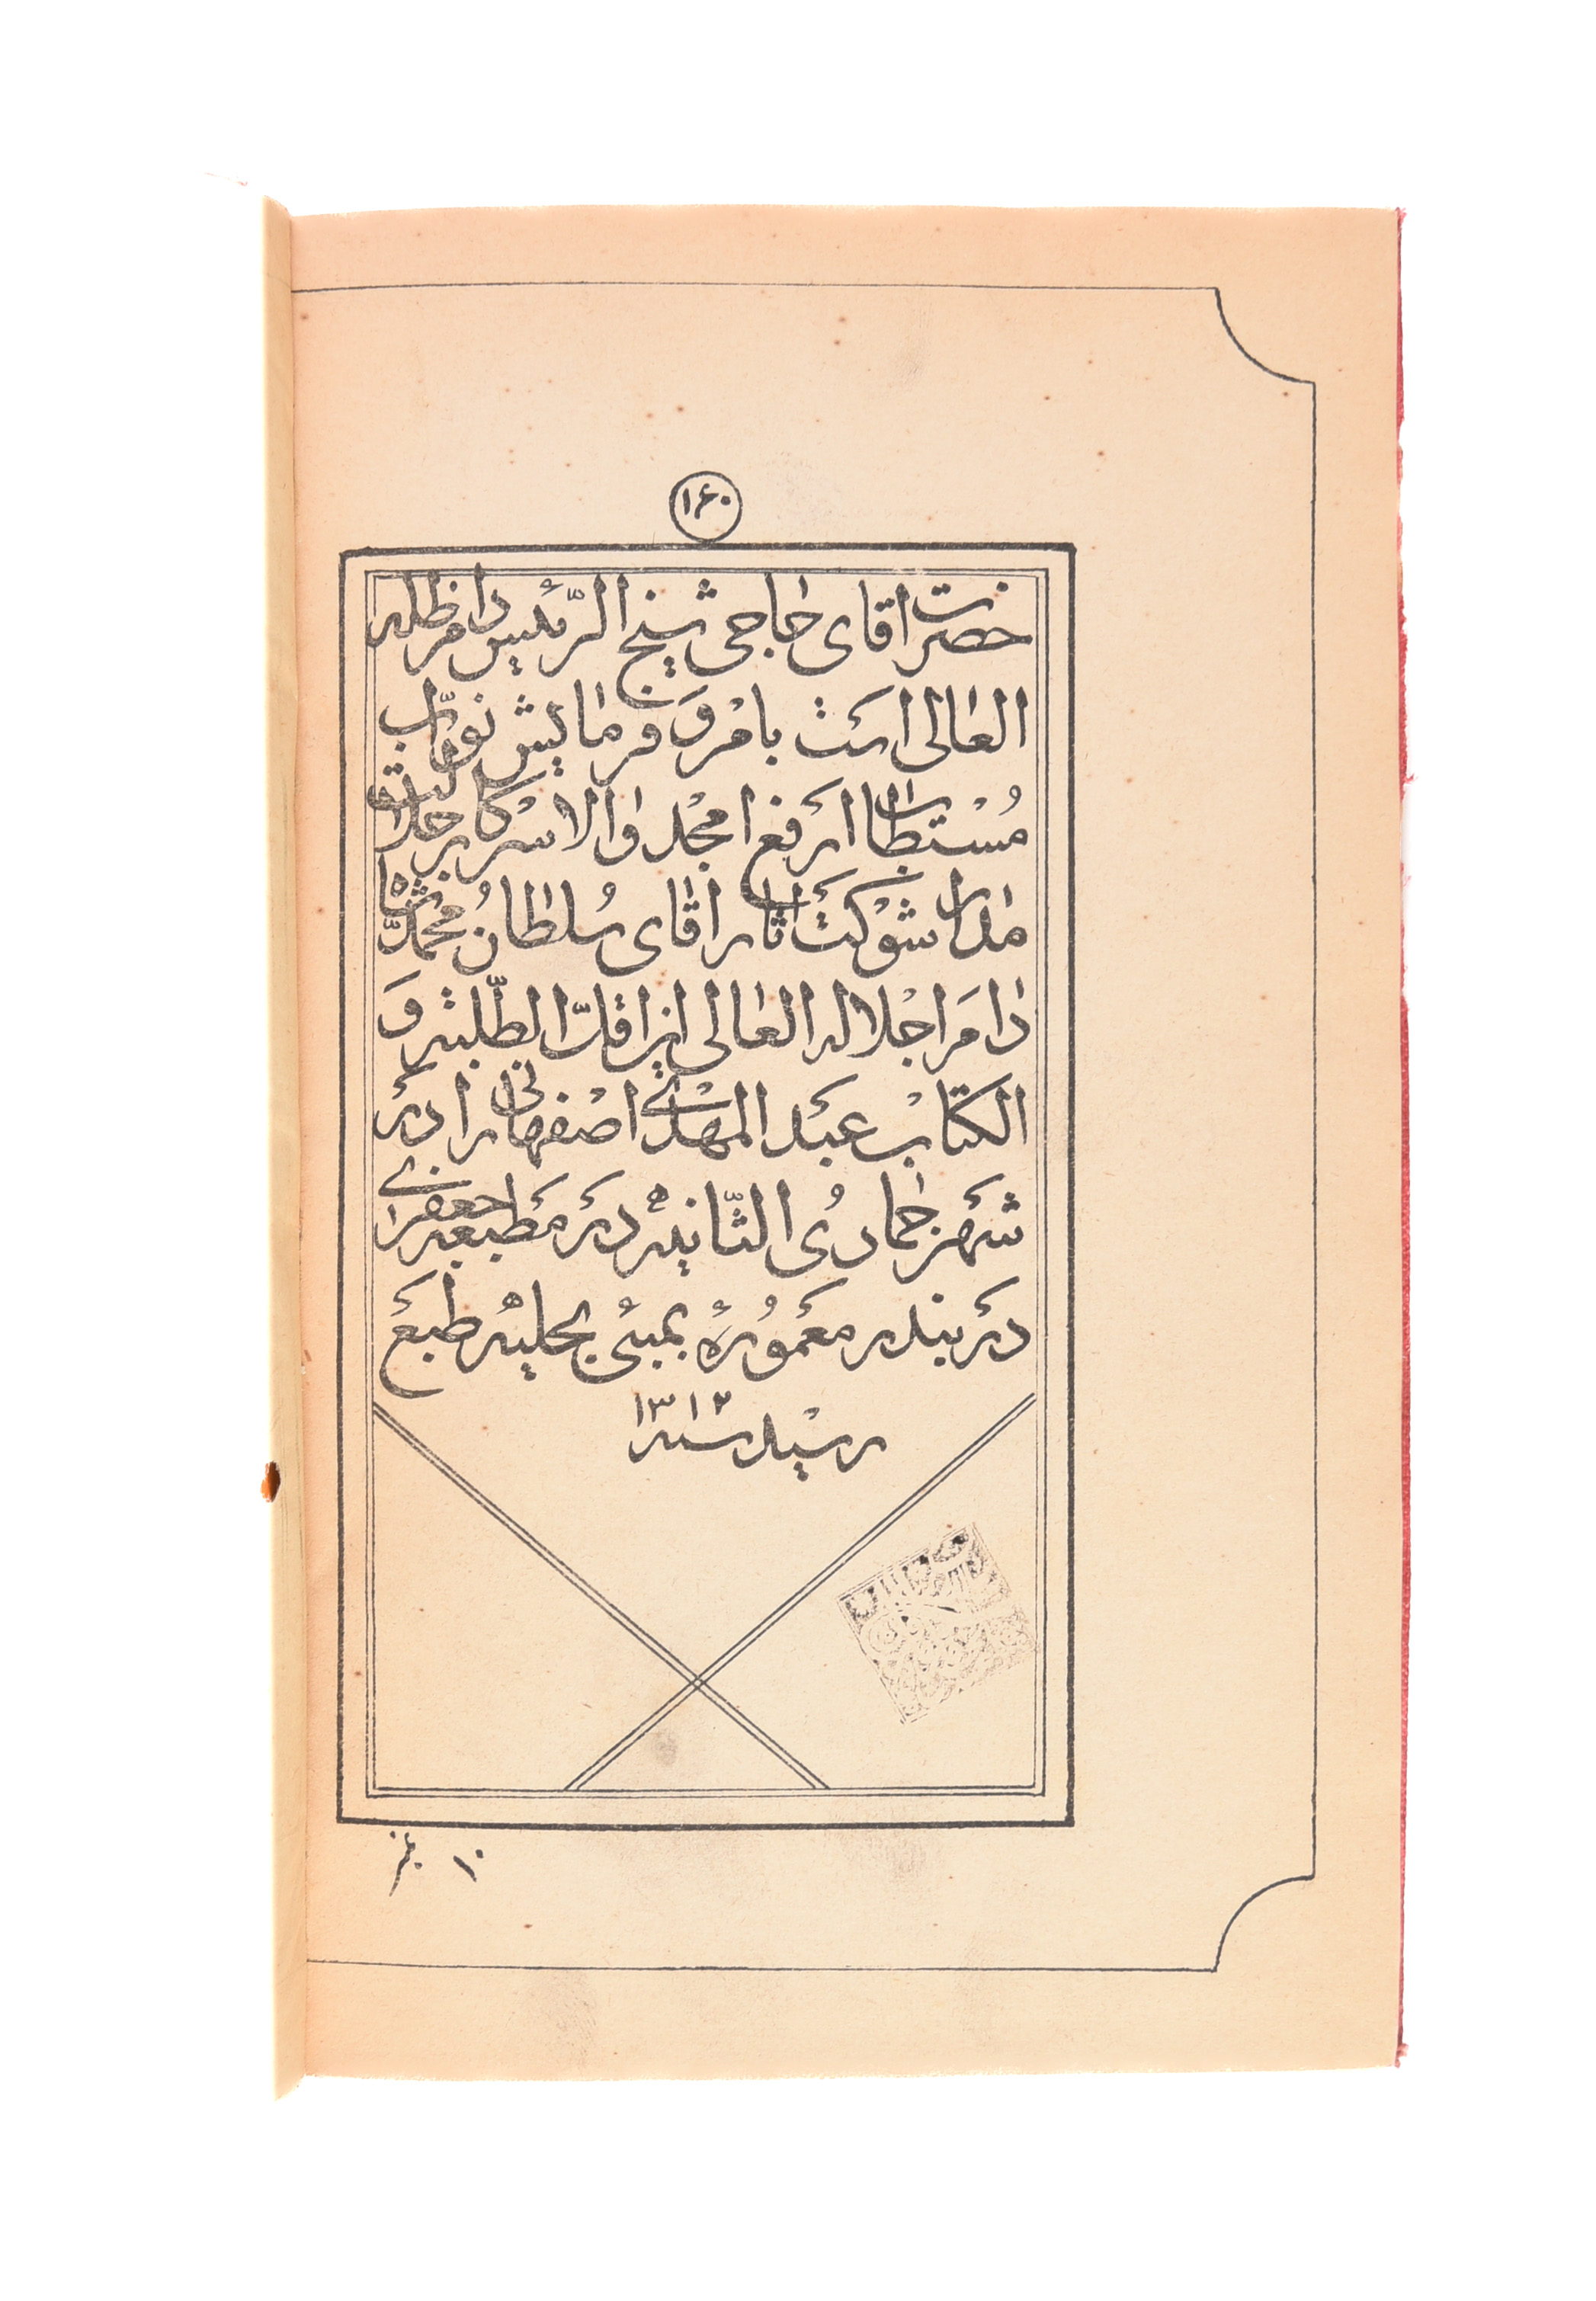 ۱۶۰
حضرت اقای حاجی شیخ الرّئیس دام ظله
العالی است بامر و فرمایش نوّاب
مُسْتطاب ارفع امجد والا سرکار جلالت
مدار شوکت اثار اقای سُلطان محمّد شاه
دام اجلاله العالی این اقلّ الطّلبه و
الکتاب عبد المهدی اصفهانی را در
شهر جمادی الثّانیه در مطبعه جعفری
در بندر معموُرهٔ بمبئی بحلیه طبع
رسید سنه ۱۳۱۲
۱۰